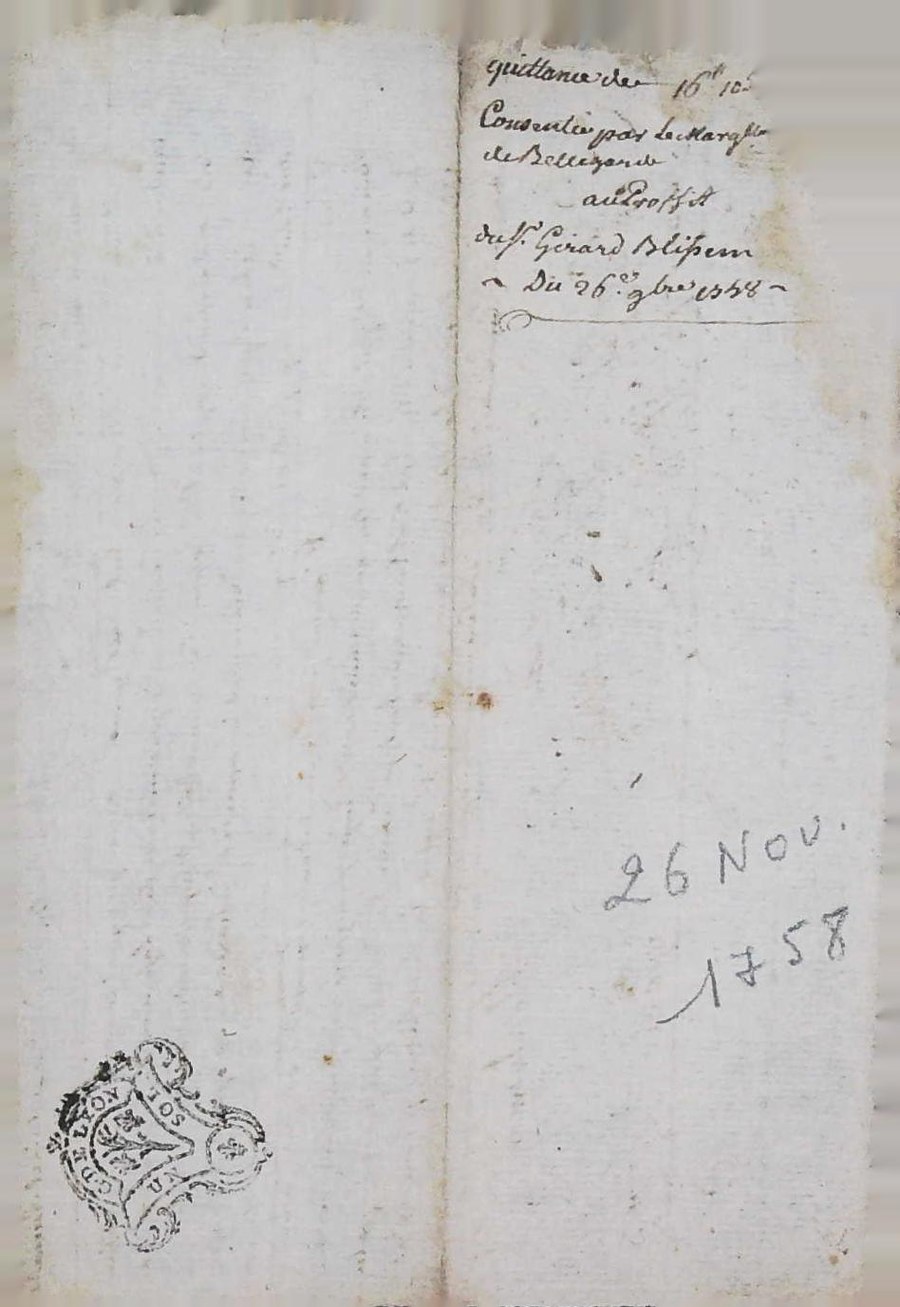 quittance de 16ᵗᵗ 10ˢ
Consentie par Le Marg
de Bellegarde
au Proffit
du Sʳ. Girard
Du 26.ᵉ 9bre 1758
26 NOV.
1758
G DE LYON
UN SOL